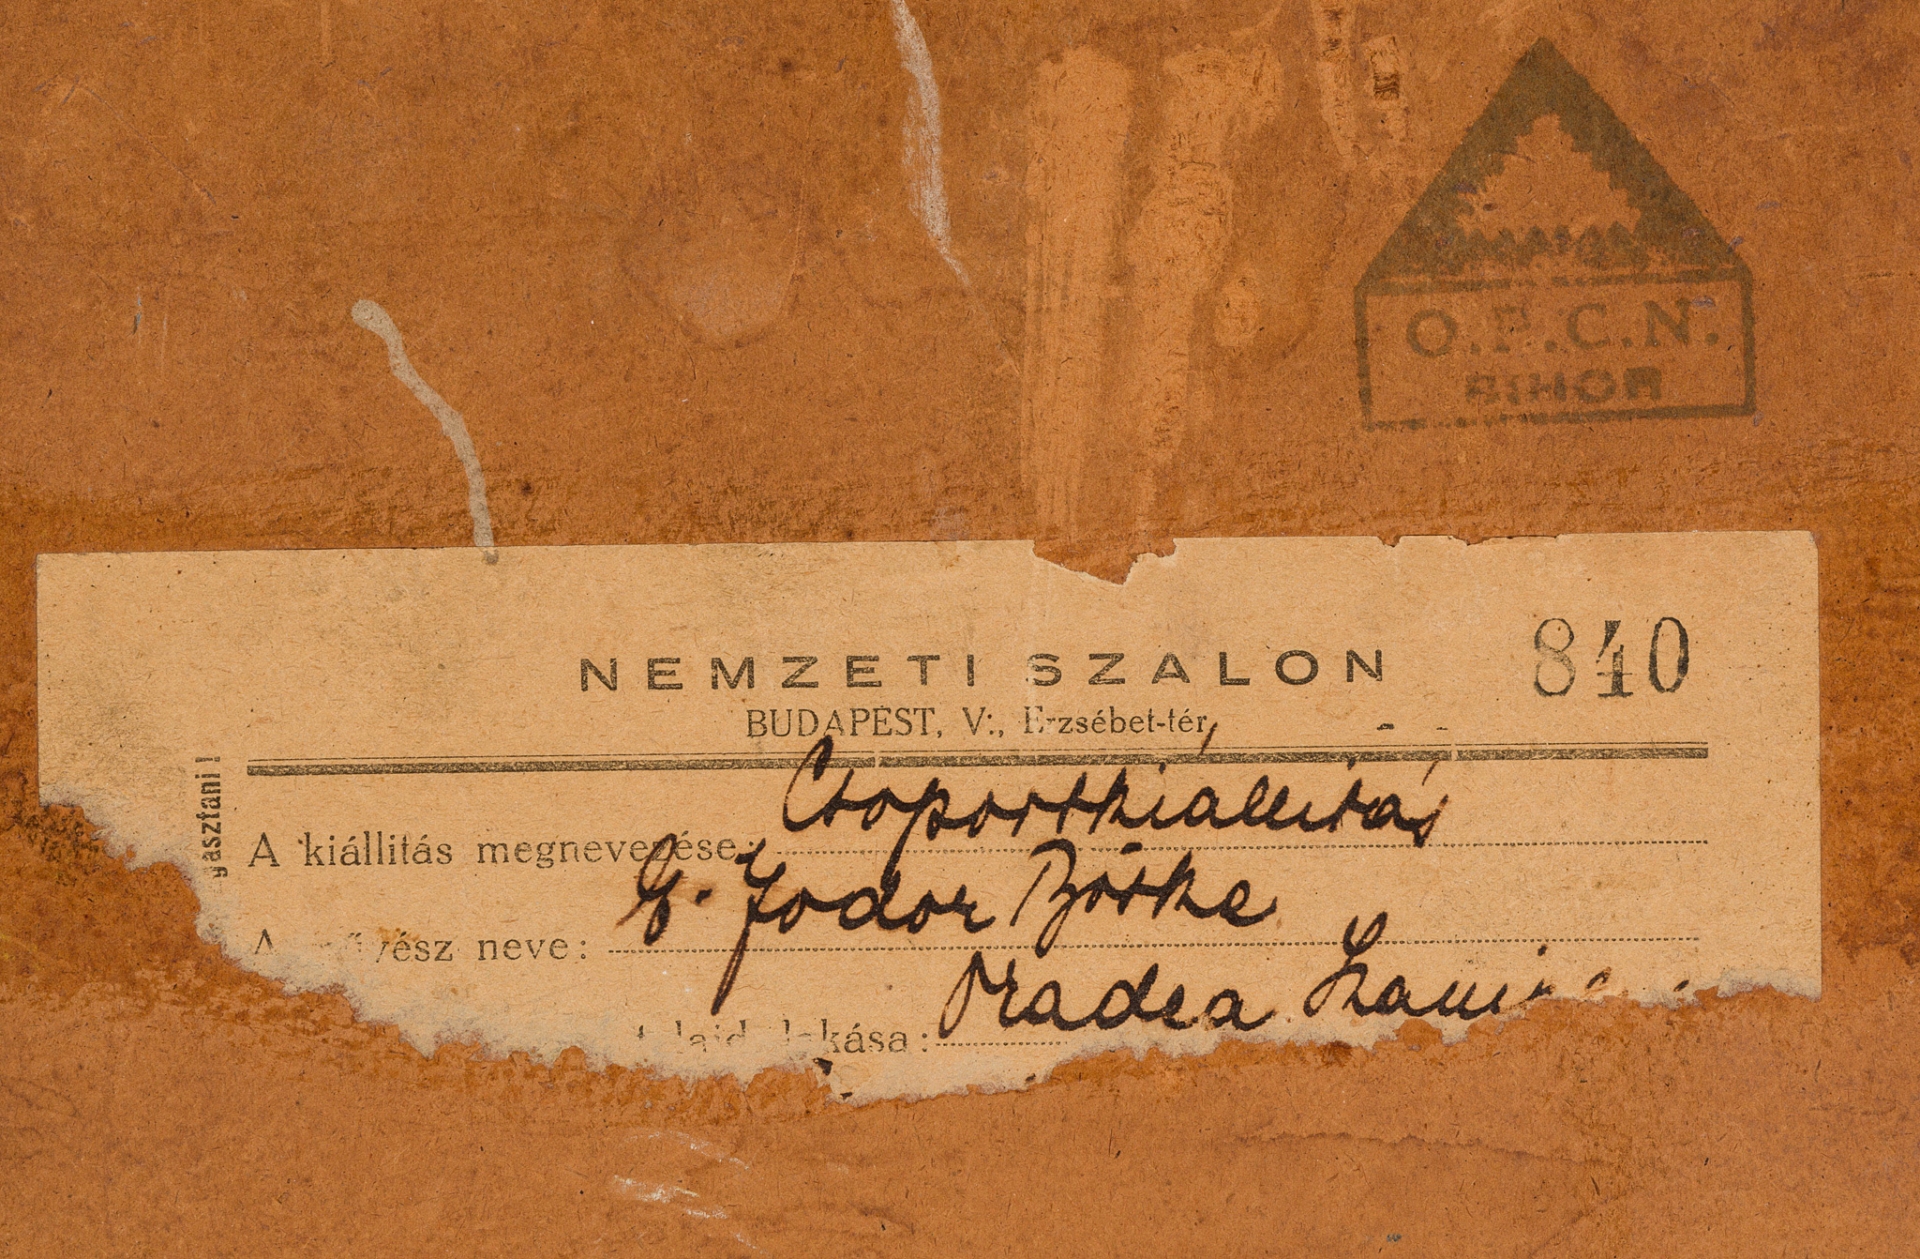 O.P.C.N.
BIHOR
840
NEMZETI SZALON
BUDAPEST, V., Erzsébet-tér,
gasztani!
A kiállitás megnevezése: Csoportkiállitás
A művész neve: G. Fodor Böske
lakása: Oradea